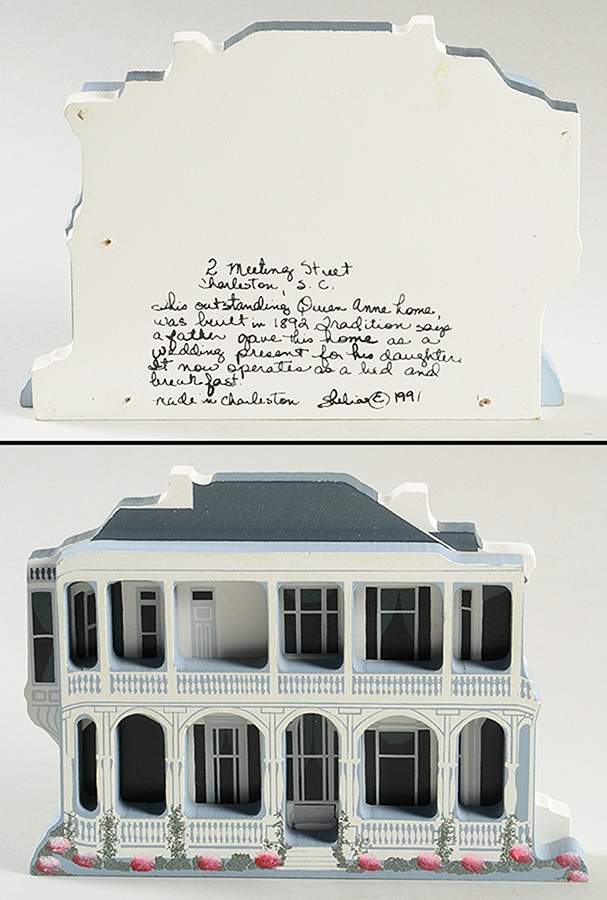 2 Meeting Street
Charleston, S.C.
This outstanding Queen Anne home,
was built in 1892. Tradition says
a father gave this home as a
wedding present for his daughter.
It now operates as a bed and
breakfast.
made in Charleston Shelia © 1991